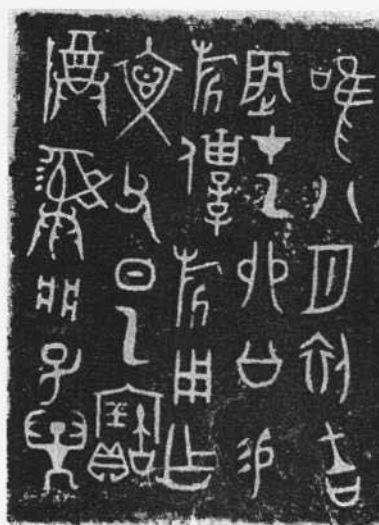 唯八月初吉
辰才乙卯公易
旂僕旂用乍
文父日乙寶
尊彝